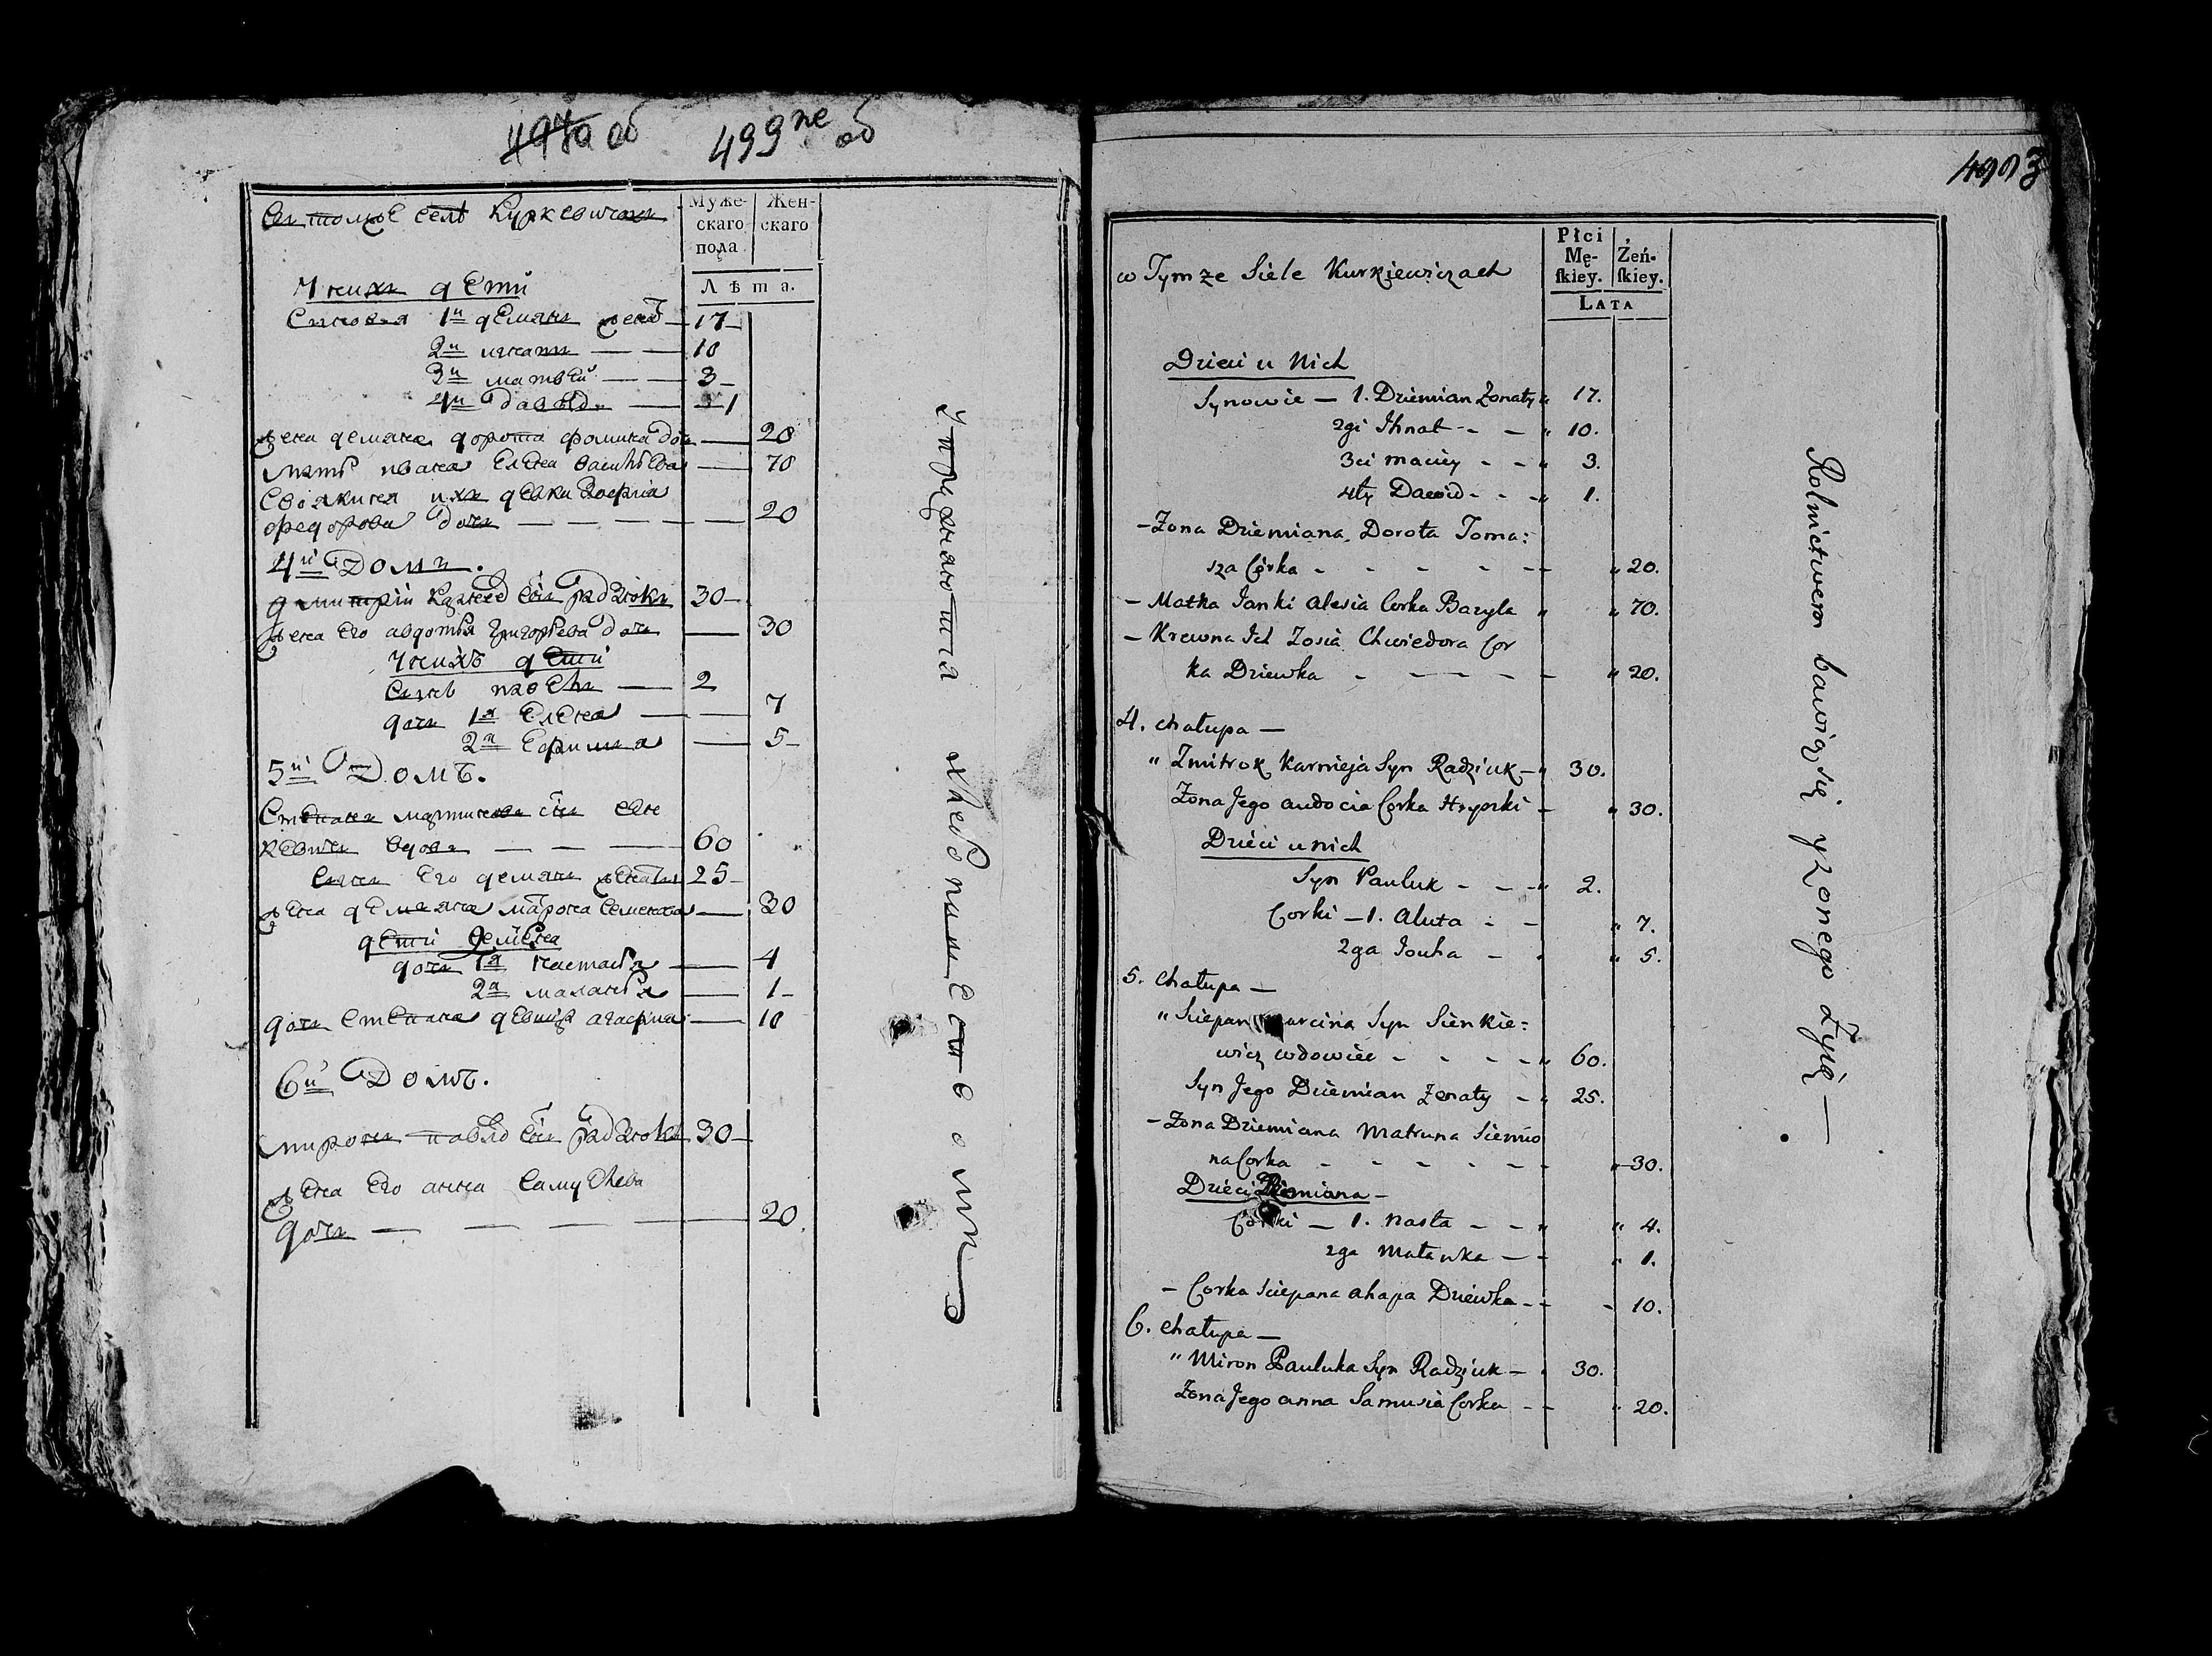 499 об
въ томже селѣ Куркевичахъ
Муже-
скаго
пола
Жен-
скаго
Лѣта.
У нихъ дети
Сыновья 1й демянъ женат — 17
2й игнатъ — 10
3й матвей — 3
4й давыдъ — 1
жена демяна дорота фомина доч — 20
мать ивана Елена василева — 70
Своякиня ихъ девка Зосфия
федорова дочь — 20
4й Домъ.
дмитрий сын радзюкъ 30
жена его авдотья григорьева дочь — 30
У нихъ дети
Сынъ — 2
дочь 1я Елена — 7
2я Ефимия — 5
5й Домъ.
Степанъ мартиновъ сын сен
кевичъ вдовъ — 60
Сынъ его демянъ женатъ 25
жена демяна матрона семенова — 30
дети демяна
дочь 1я настасья — 4
2я маланья — 1
дочь степана девица агафия — 10
6й Домъ.
миронъ павлов сын радзюкъ 30
жена его анна самуилева
дочь — 20
упражняются хлебопашеством
4993
w Tymze Siele Kurkiewiczach
Płci
Mę-
ſkiey.
Żeń-
ſkiey.
LATA
Dzieci u Nich
Synowie — 1. Dziemian Zonaty " 17.
2gi Ihnat - - " 10.
3ci maciey - - " 3.
4ty Dawid - - " 1.
- Zona Dziemiana Dorota Toma:
sza Córka - - - - " 20.
- Matka Janki alesia Corka Bazyla " " 70.
- Krewna Ich Zosia Chwiedora Cor
ka Dziewka - - - - " 20.
4. chałupa —
" Zmitrok Karnieja Syn Radziuk — " 30.
Zona Jego audocia Corka Hryorki - " 30.
Dzieci u nich
Syn Pauluk - - " 2.
Corki — 1. aluta - - " 7.
2ga Jouha - - " 5.
5. chałupa —
" Sciepan marcina Syn Sienkie=
wicz wdowiec - - - - " 60.
Syn Jego Dziemian Zonaty - " 25.
- Zona Dziemiana Matruna Siemio
na Corka - - - - - " 30.
Dzieci Dziemiana —
Córki — 1. nasta - - " " 4.
2ga Małanka - - " 1.
- Corka Sciepana ahapa Dziewka - - - 10.
6. chałupa —
" Miron Pauluka Syn Radziuk — " 30.
Zona Jego anna Samusia Corka - - " 20.
Rolnictwem bawią się y z onego żyią —